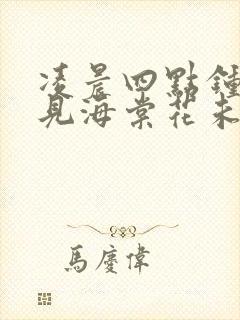 凌晨四點鍾
見海棠花未
馬慶偉